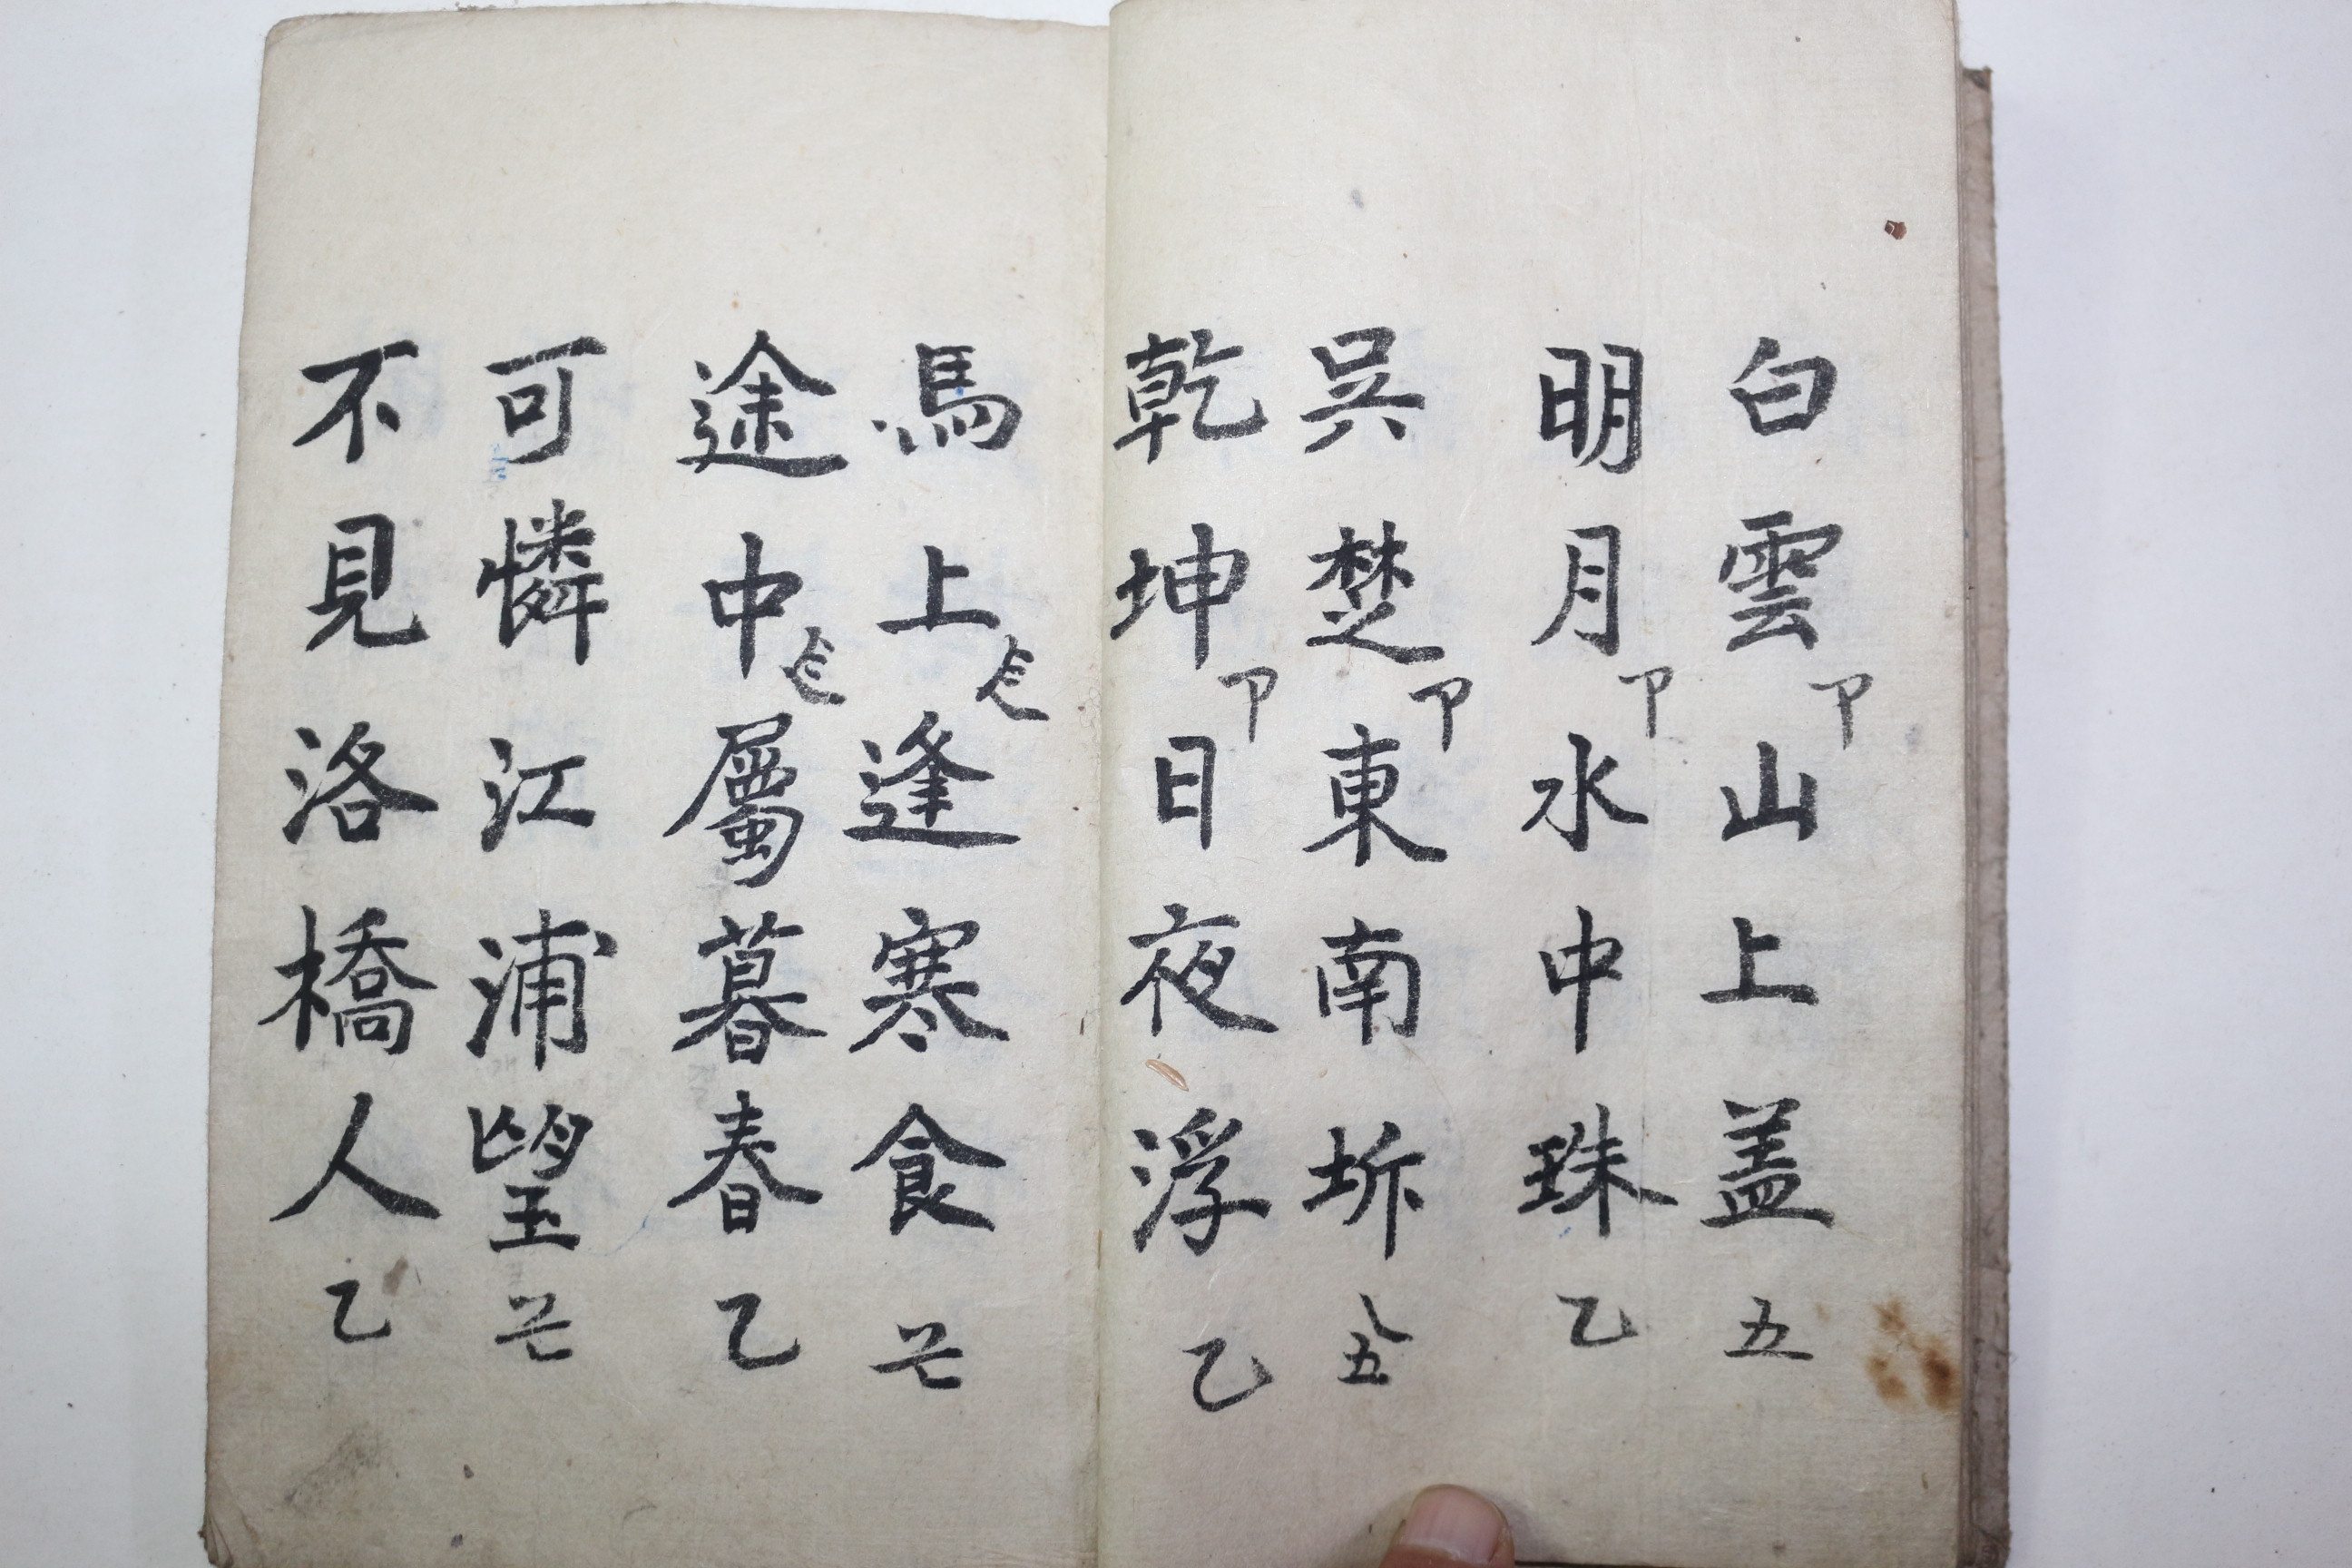 白雲卩山上盖五
明月卩水中珠乙
吳楚卩東南坼乀五
乾坤卩日夜浮乙
馬上逢寒食
途中屬暮春乙
可憐江浦望
不見洛橋人乙